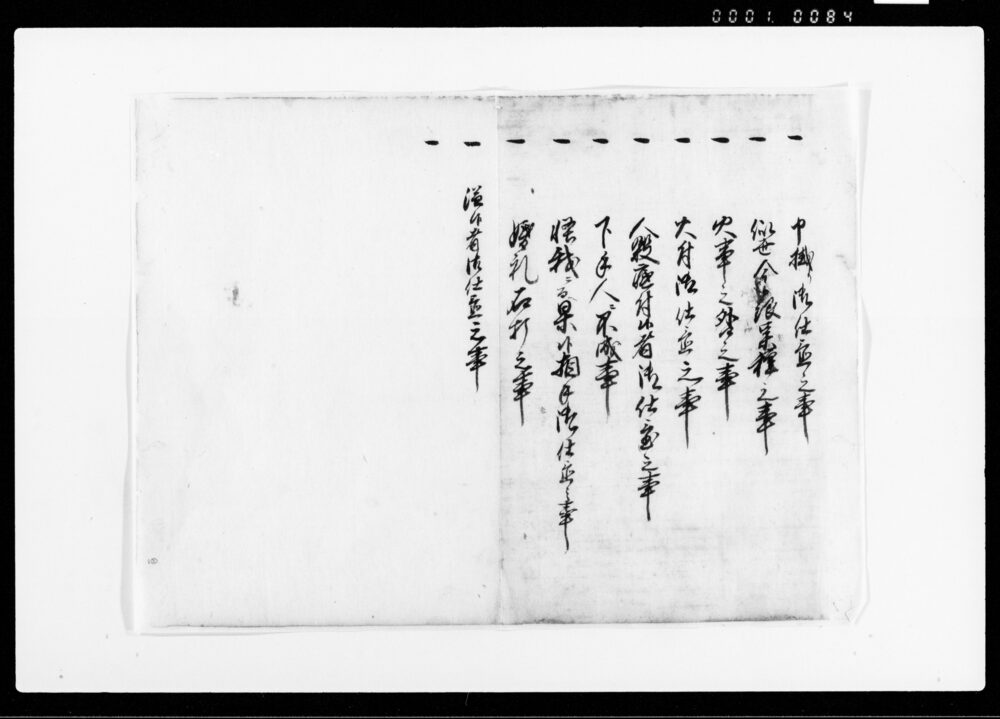 0001. 0084
一 巾掛り御仕置之事
一 似せ金銀朱秤之事
一 火事之咎之事
一 火付御仕置之事
一 人殺疵付候者御仕置之事
一 下手人ニ不成事
一 怪我ニ而果候相手御仕置之事
一 婚礼石打之事
一 溢候者御仕置之事
一